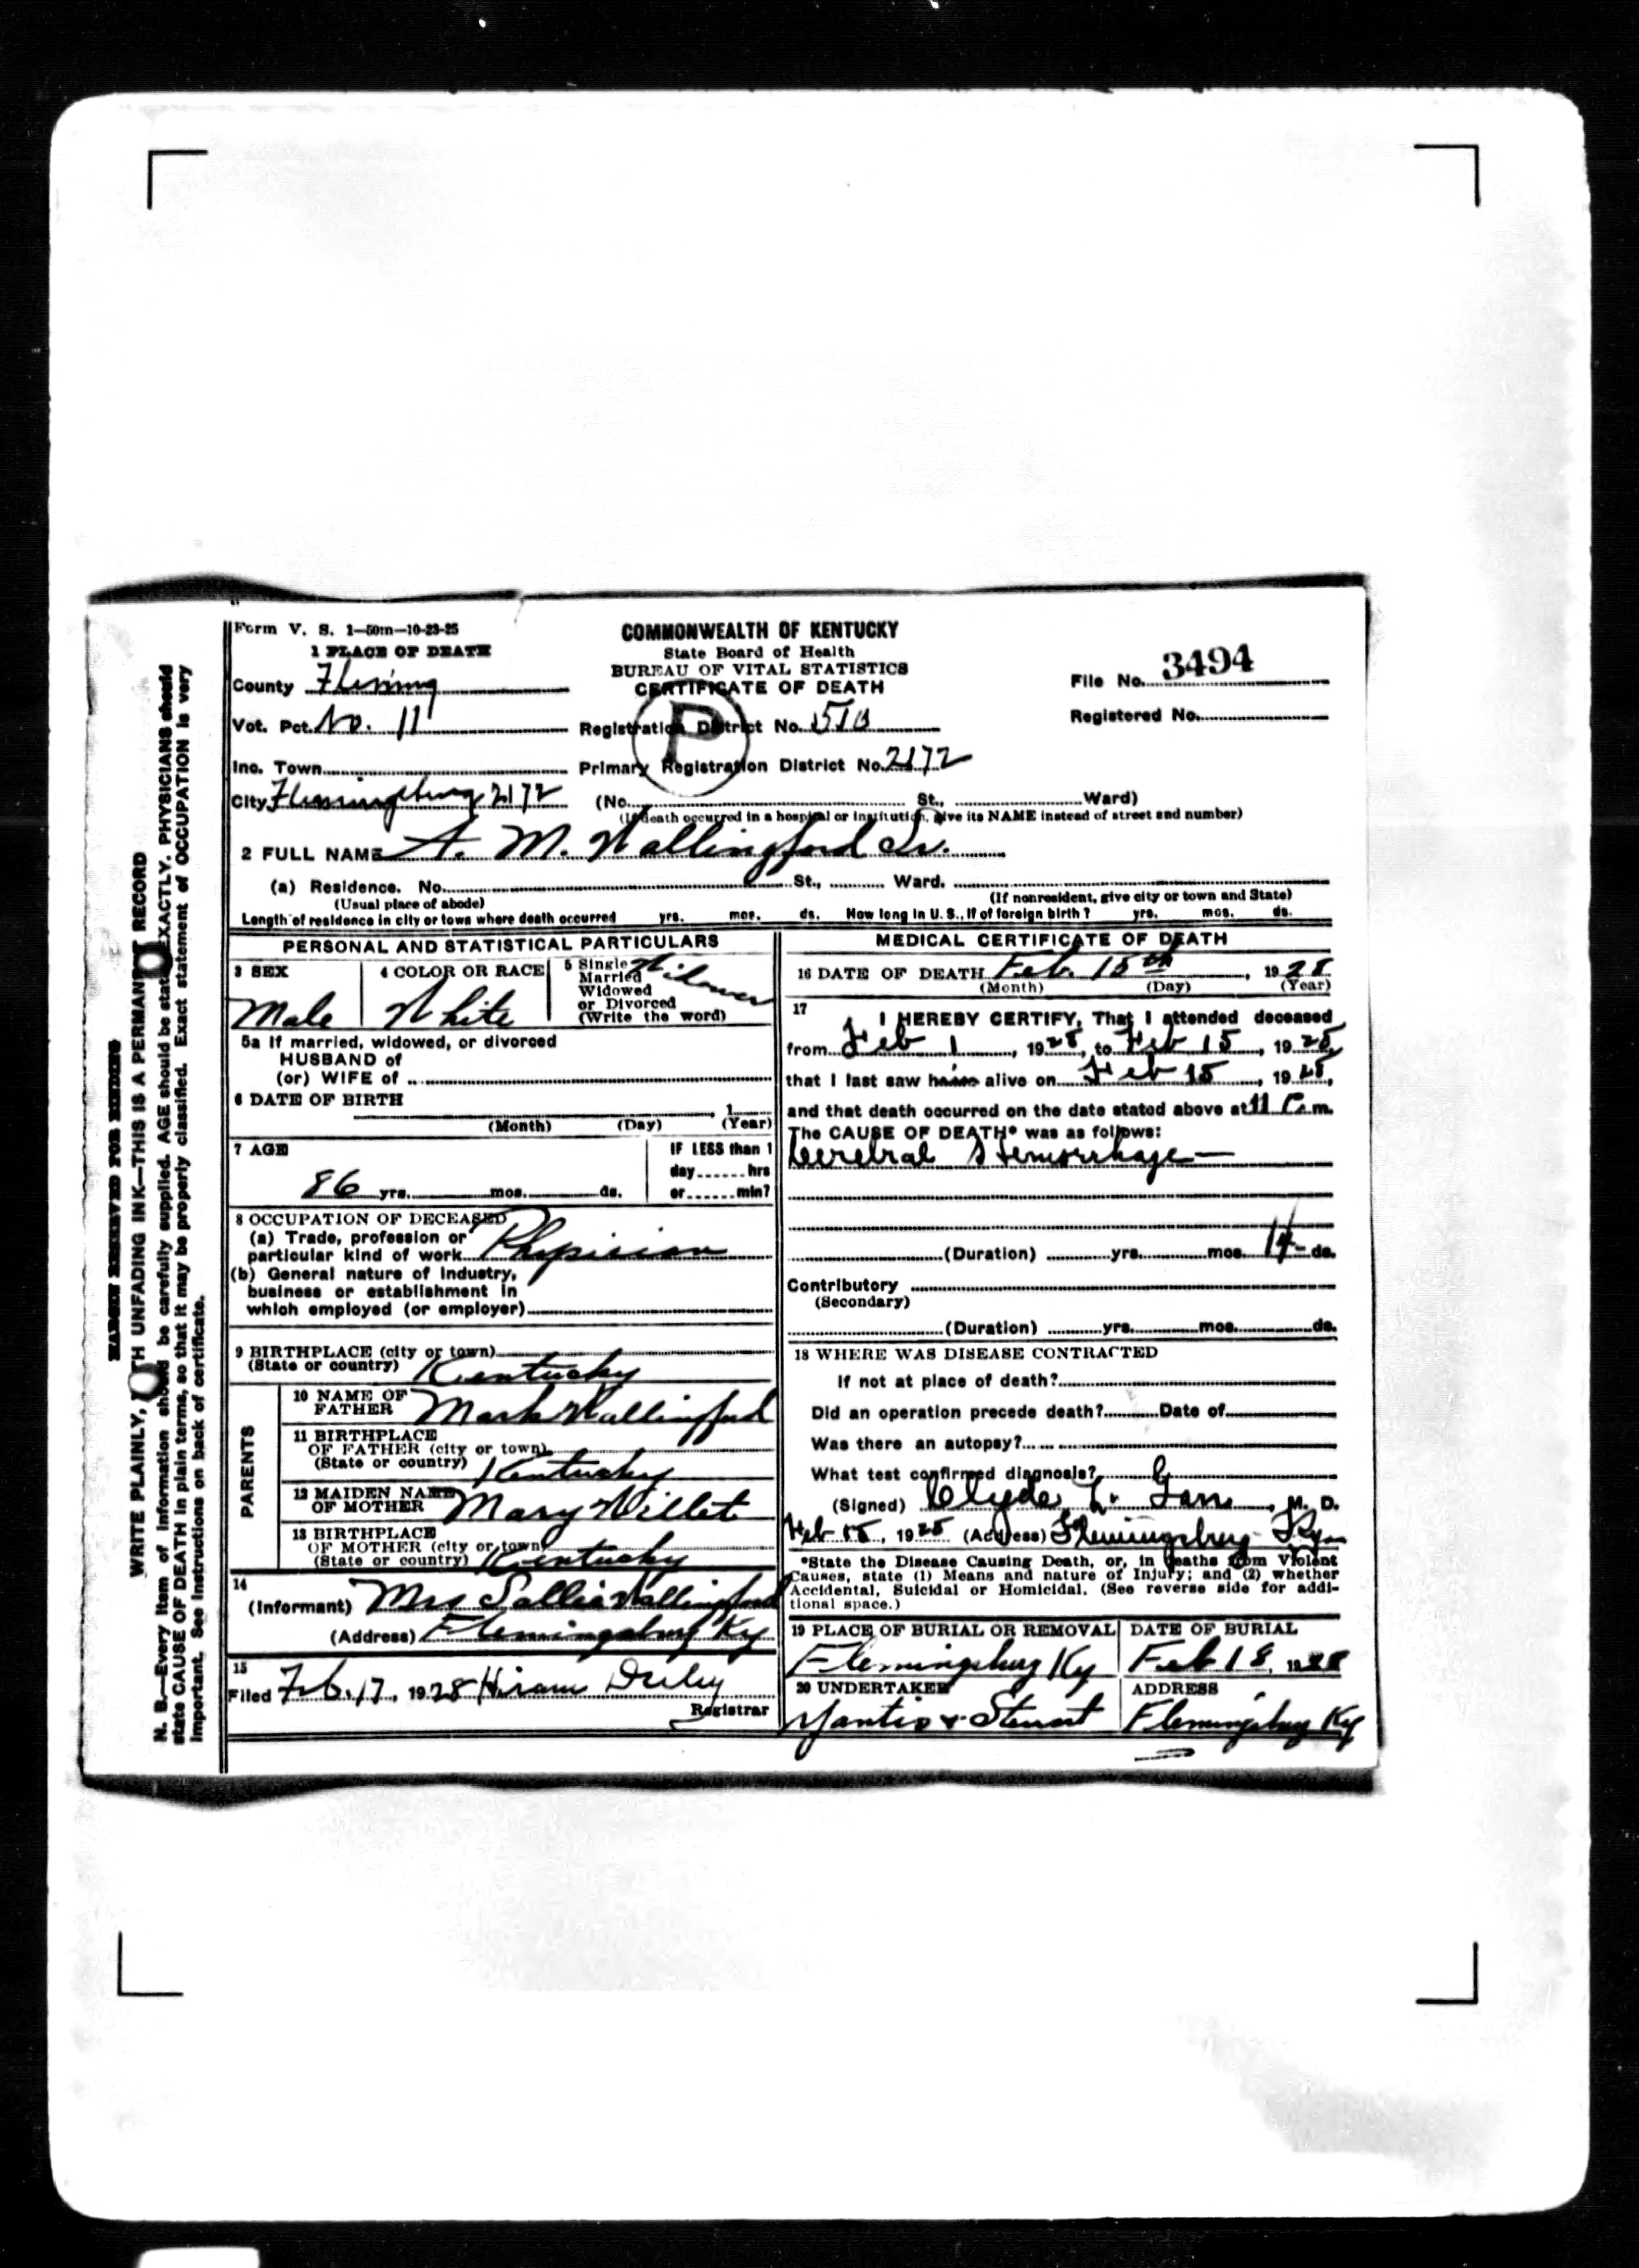 Form V. S. 1—50m—10-23-25
COMMONWEALTH OF KENTUCKY
State Board of Health
BUREAU OF VITAL STATISTICS
CERTIFICATE OF DEATH
1 PLACE OF DEATH
File No. 3494
County Fleming
Registered No.
Vot. Pct. No. 11
P
Registration District No. 510
Inc. Town
Primary Registration District No. 2172
City Flemingsburg 2172 (No. St., Ward)
(If death occurred in a hospital or institution, give its NAME instead of street and number)
2 FULL NAME A. M. Wallingford Sr.
(a) Residence. No. St., Ward.
(Usual place of abode) (If nonresident, give city or town and State)
Length of residence in city or town where death occurred yrs. mos. ds. How long in U. S., if of foreign birth? yrs. mos. ds.
PERSONAL AND STATISTICAL PARTICULARS
3 SEX
Male
4 COLOR OR RACE
White
5 Single
Married
Widowed
or Divorced
(Write the word)
Widower
5a If married, widowed, or divorced
HUSBAND of
(or) WIFE of
6 DATE OF BIRTH
, 1
(Month) (Day) (Year)
7 AGE
86 yrs. mos. ds.
IF LESS than 1
day hrs
or min?
8 OCCUPATION OF DECEASED
(a) Trade, profession or
particular kind of work Physician
(b) General nature of industry,
business or establishment in
which employed (or employer)
9 BIRTHPLACE (city or town)
(State or country) Kentucky
PARENTS
10 NAME OF
FATHER Mark Wallingford
11 BIRTHPLACE
OF FATHER (city or town)
(State or country) Kentucky
12 MAIDEN NAME
OF MOTHER Mary Willet
13 BIRTHPLACE
OF MOTHER (city or town)
(State or country) Kentucky
14
(Informant) Mrs Sallie Wallingford
(Address) Flemingsburg Ky
15
Filed Feb. 17, 1928 Hiram
Registrar
MEDICAL CERTIFICATE OF DEATH
16 DATE OF DEATH Feb. 15th, 1928
(Month) (Day) (Year)
17
I HEREBY CERTIFY, That I attended deceased
from Feb 1, 1928, to Feb 15, 1928,
that I last saw him alive on Feb 15, 1928,
and that death occurred on the date stated above at 11 P. m.
The CAUSE OF DEATH* was as follows:
Cerebral Hemorrhage
(Duration) yrs. mos. 14 ds.
Contributory
(Secondary)
(Duration) yrs. mos. ds.
18 WHERE WAS DISEASE CONTRACTED
If not at place of death?
Did an operation precede death? Date of
Was there an autopsy?
What test confirmed diagnosis?
(Signed) Clyde L. , M. D.
Feb 15, 1928 (Address) Flemingsburg Ky
*State the Disease Causing Death, or, in deaths from Violent
Causes, state (1) Means and nature of Injury; and (2) whether
Accidental, Suicidal or Homicidal. (See reverse side for addi-
tional space.)
19 PLACE OF BURIAL OR REMOVAL
Flemingsburg Ky
DATE OF BURIAL
Feb 18, 1928
20 UNDERTAKER
Yantis & Stewart
ADDRESS
Flemingsburg Ky
MARGIN RESERVED FOR BINDING
WRITE PLAINLY, WITH UNFADING INK—THIS IS A PERMANENT RECORD
N. B.—Every item of information should be carefully supplied. AGE should be stated EXACTLY. PHYSICIANS should
state CAUSE OF DEATH in plain terms, so that it may be properly classified. Exact statement of OCCUPATION is very
important. See instructions on back of certificate.